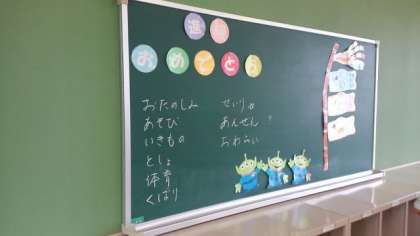 進級
おめでとう
おたのしみ
あそび
いきもの
としょ
体育
くばり
せいりや
あんぜん
おわらい